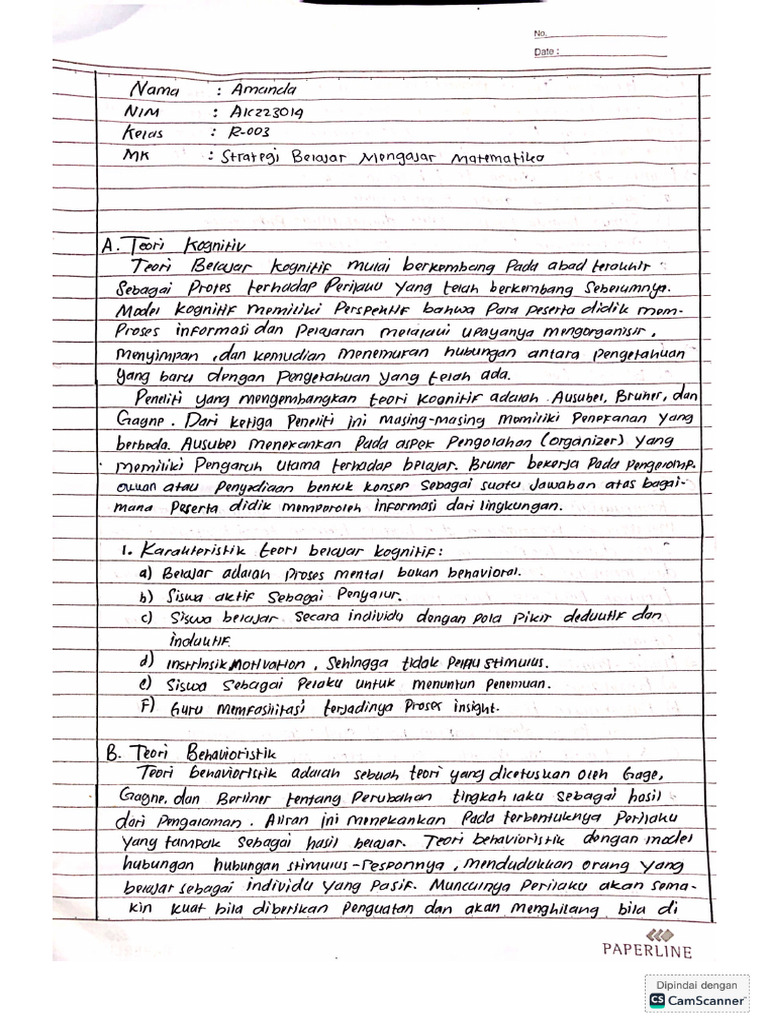 No.
Date :
Nama : Amanda
NIM : A1C223019
Kelas : R-003
MK : Strategi Belajar Mengajar Matematika
A. Teori Kognitiv
Teori Belajar Kognitif mulai berkembang Pada abad terakhir
Sebagai Protes terhadap Perilaku Yang telah berkembang Sebelumnya.
Model Kognitif memiliki Perspektif bahwa Para Peserta didik mem-
Proses informasi dan Pelajaran melalui upayanya mengorganisir,
menyimpan, dan kemudian menemukan hubungan antara Pengetahuan
Yang baru dengan Pengetahuan Yang telah ada.
Peneliti yang mengembangkan teori Kognitif adalah Ausubel, Bruner, dan
Gagne. Dari ketiga Peneliti ini masing-masing memiliki Penekanan Yang
berbeda. Ausubel menekankan Pada aspek Pengolahan (organizer) yang
memiliki Pengaruh utama terhadap belajar. Bruner bekerja Pada pengelomp.
okkan atau Penyediaan bentuk konsep Sebagai suatu Jawaban atas bagai-
mana Peserta didik memperoleh informasi dari lingkungan.
1. Karakteristik teori belajar kognitif :
a) Belajar adalah Proses mental bukan behavioral.
b) Siswa aktif Sebagai Penyalur.
c) Siswa belajar Secara individu dengan pola pikir deduktif dan
induktif.
d) Instrinsik Motivation, Sehingga tidak Perlu stimulus.
e) Siswa Sebagai Pelaku untuk menuntun Penemuan.
F) Guru memfasilitasi terjadinya Proses insight.
B. Teori Behavioristik
Teori behavioristik adalah sebuah teori yang dicetuskan oleh Gage,
Gagne, dan Berliner tentang Perubahan tingkah laku Sebagai hasil
dari Pengalaman. Aliran ini menekankan Pada terbentuknya Perilaku
Yang tampak Sebagai hasil belajar. Teori behavioristik dengan model
hubungan hubungan stimulus-responnya, mendudukkan orang yang
belajar sebagai individu yang Pasif. Munculnya Perilaku akan sema-
kin kuat bila diberikan Penguatan dan akan menghilang bila di
PAPERLINE
Dipindai dengan
CS CamScanner